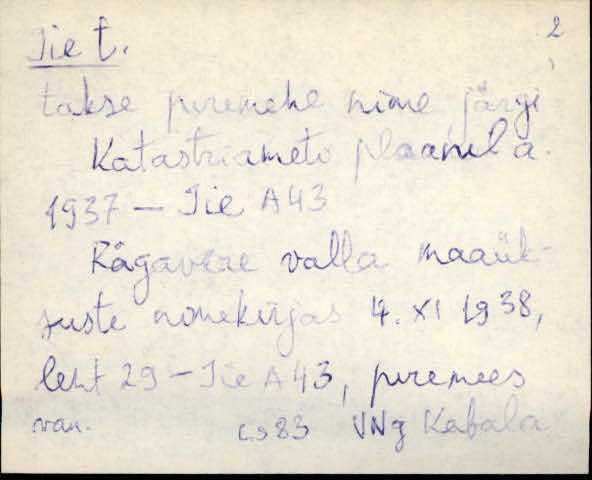 Iie t.
2
takse peremehe nime järgi
Katastriameti plaanil a.
1937 – Iie A43
Rägavere valla maaük-
suste nimekirjas 4. XI 1938,
leht 29 – Iie A43, peremees
1983 VNg Kabala